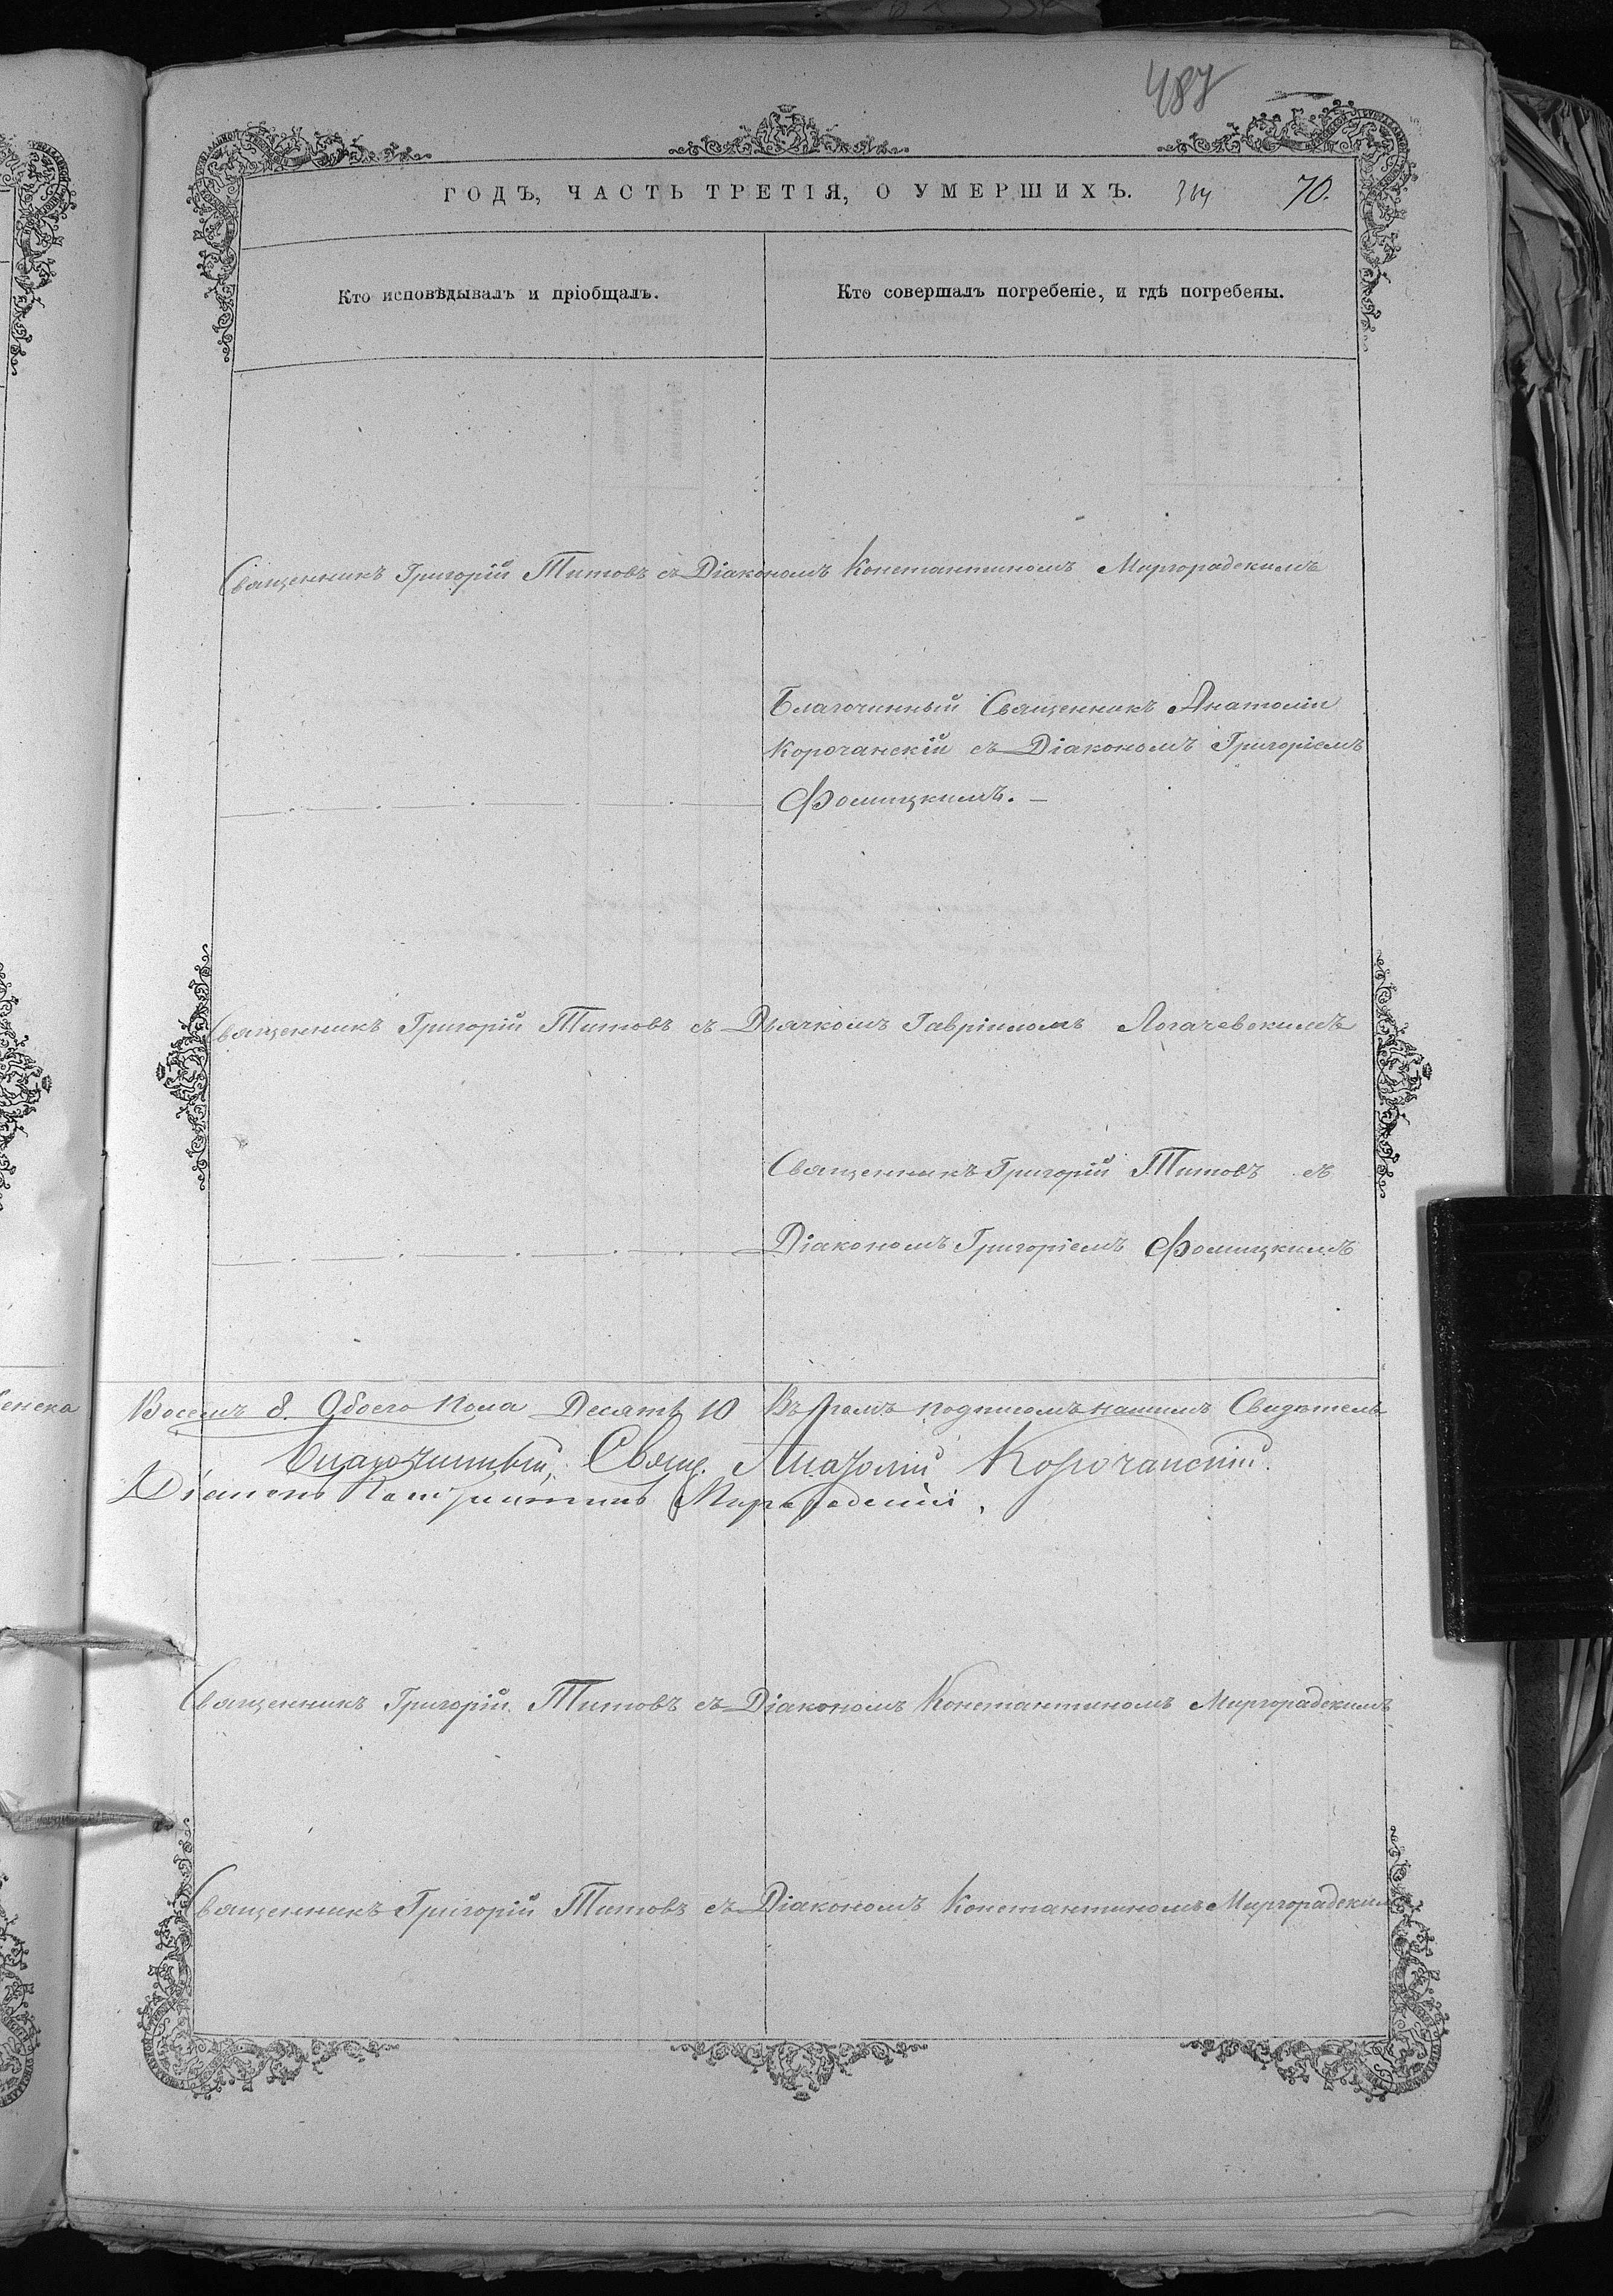 487
ГОДЪ, ЧАСТЬ ТРЕТІЯ, О УМЕРШИХЪ. 314 70.
Кто исповѣдывалъ и пріобщалъ.
Кто совершалъ погребеніе, и гдѣ погребены.
Священникъ Григорій Титовъ съ Діакономъ Константиномъ Миргородскимъ
Благочинный Священникъ Анатолій
Корочанскій съ Діакономъ Григоріемъ
Фомицкимъ. —
Священникъ Григорій Титовъ съ Дьячкомъ Гавріиломъ Логачевскимъ
Священникъ Григорій Титовъ съ
Діакономъ Григоріемъ Фомицкимъ
Восемь 8. Обоего пола Десять 10 Въ томъ подписомъ нашимъ Свидѣтель
Благочинный, Свящ. Анатолій Корочанскій.
Діаконъ Константинъ Миргородскій.
Священникъ Григорій Титовъ съ Діакономъ Константиномъ Миргородскимъ
Священникъ Григорій Титовъ съ Діакономъ Константиномъ Миргородским